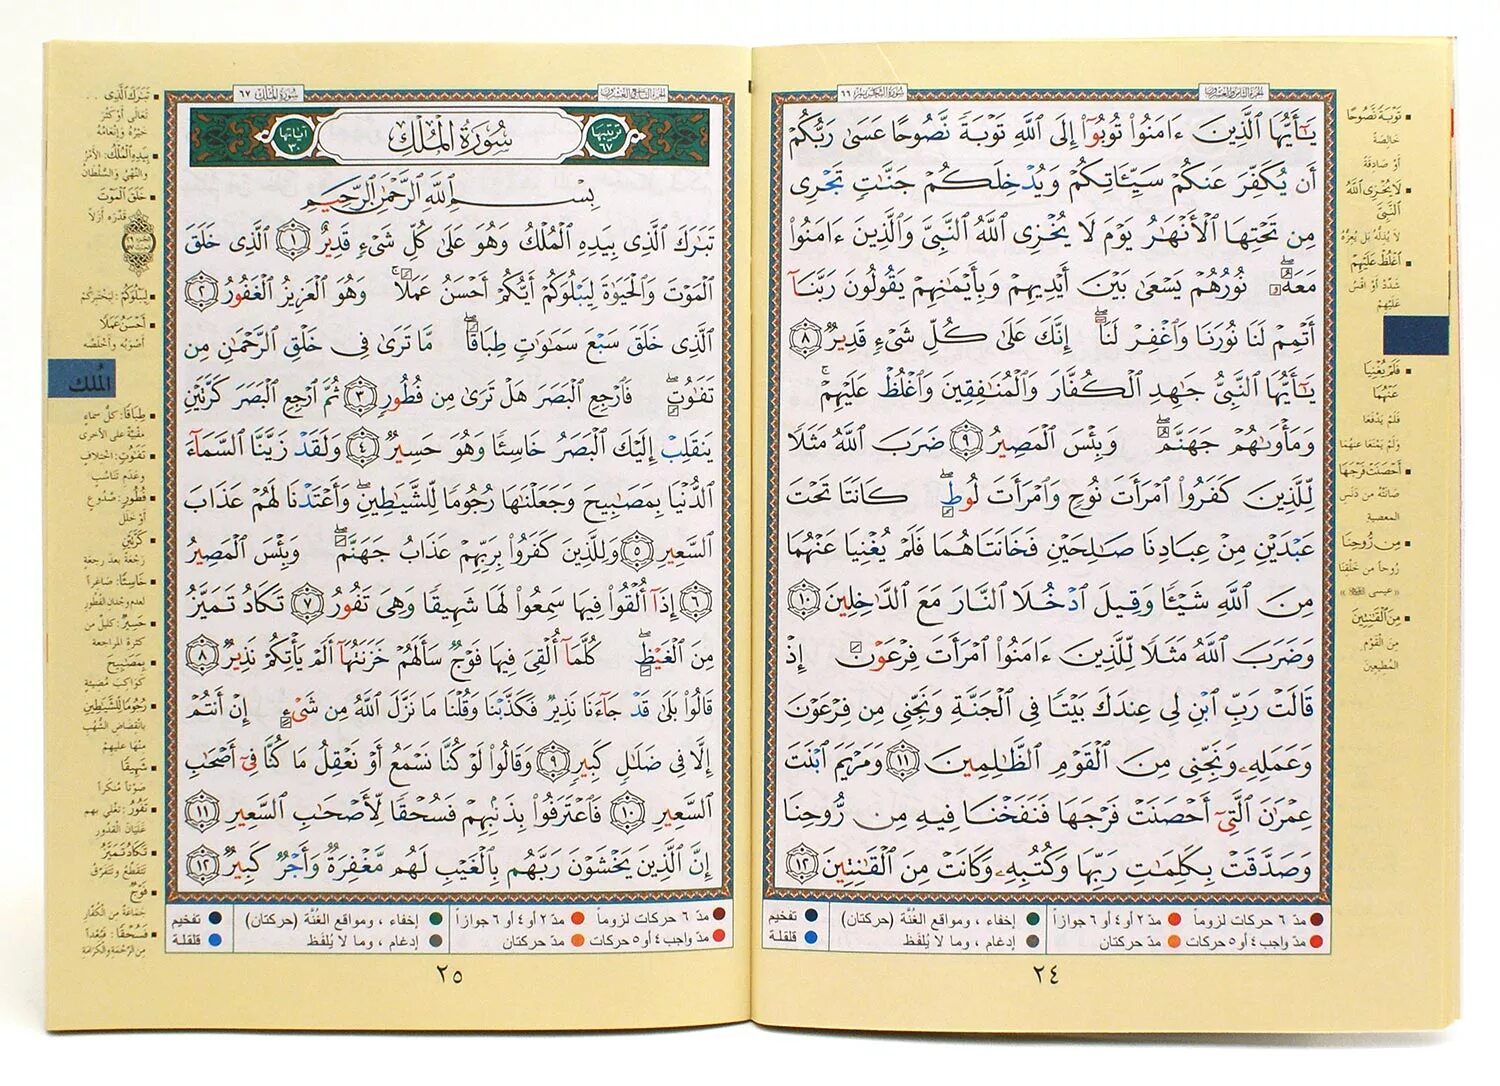 سُورَةُ التَّحْرِيمِ ٦٦
الجُزْءُ الثَّامِنُ وَالعِشْرُونَ
يَٰٓأَيُّهَا ٱلَّذِينَ ءَامَنُوا۟ تُوبُوٓا۟ إِلَى ٱللَّهِ تَوْبَةً نَّصُوحًا عَسَىٰ رَبُّكُمْ
أَن يُكَفِّرَ عَنكُمْ سَيِّـَٔاتِكُمْ وَيُدْخِلَكُمْ جَنَّٰتٍ تَجْرِى
مِن تَحْتِهَا ٱلْأَنْهَٰرُ يَوْمَ لَا يُخْزِى ٱللَّهُ ٱلنَّبِىَّ وَٱلَّذِينَ ءَامَنُوا۟
مَعَهُۥ نُورُهُمْ يَسْعَىٰ بَيْنَ أَيْدِيهِمْ وَبِأَيْمَٰنِهِمْ يَقُولُونَ رَبَّنَآ
أَتْمِمْ لَنَا نُورَنَا وَٱغْفِرْ لَنَآ إِنَّكَ عَلَىٰ كُلِّ شَىْءٍ قَدِيرٌ ٨
يَٰٓأَيُّهَا ٱلنَّبِىُّ جَٰهِدِ ٱلْكُفَّارَ وَٱلْمُنَٰفِقِينَ وَٱغْلُظْ عَلَيْهِمْ ۚ
وَمَأْوَىٰهُمْ جَهَنَّمُ وَبِئْسَ ٱلْمَصِيرُ ٩ ضَرَبَ ٱللَّهُ مَثَلًا
لِّلَّذِينَ كَفَرُوا۟ ٱمْرَأَتَ نُوحٍ وَٱمْرَأَتَ لُوطٍ كَانَتَا تَحْتَ
عَبْدَيْنِ مِنْ عِبَادِنَا صَٰلِحَيْنِ فَخَانَتَاهُمَا فَلَمْ يُغْنِيَا عَنْهُمَا
مِنَ ٱللَّهِ شَيْـًٔا وَقِيلَ ٱدْخُلَا ٱلنَّارَ مَعَ ٱلدَّٰخِلِينَ ١٠
وَضَرَبَ ٱللَّهُ مَثَلًا لِّلَّذِينَ ءَامَنُوا۟ ٱمْرَأَتَ فِرْعَوْنَ إِذْ
قَالَتْ رَبِّ ٱبْنِ لِى عِندَكَ بَيْتًا فِى ٱلْجَنَّةِ وَنَجِّنِى مِن فِرْعَوْنَ
وَعَمَلِهِۦ وَنَجِّنِى مِنَ ٱلْقَوْمِ ٱلظَّٰلِمِينَ ١١ وَمَرْيَمَ ٱبْنَتَ
عِمْرَٰنَ ٱلَّتِىٓ أَحْصَنَتْ فَرْجَهَا فَنَفَخْنَا فِيهِ مِن رُّوحِنَا
وَصَدَّقَتْ بِكَلِمَٰتِ رَبِّهَا وَكُتُبِهِۦ وَكَانَتْ مِنَ ٱلْقَٰنِتِينَ ١٢
تَوْبَةً نَّصُوحًا
خالِصَةً
أوْ صادِقَةً
لَا يُخْزِى ٱللَّهُ
ٱلنَّبِىَّ
لا يُذِلُّهُ بل يُعِزُّهُ
ٱغْلُظْ عَلَيْهِمْ
شَدِّدْ أوْ اقْسُ
عَلَيْهِمْ
فَلَمْ يُغْنِيَا
عَنْهُمَا
فَلَمْ يَدْفَعَا
وَلَمْ يَمْنَعَا عنهما
أَحْصَنَتْ فَرْجَهَا
صَانَتْهُ من دَنَسِ
المعصية
مِن رُّوحِنَا
رُوحاً من خَلْقِنا
«عيسى ﷺ»
مِنَ ٱلْقَٰنِتِينَ
مِنَ القَوْمِ
المُطِيعِينَ
مدّ ٦ حركات لزوماً مدّ ٢ أو ٤ أو ٦ جوازاً إخفاء ، ومواقع الغُنَّة (حركتان) تفخيم
مدّ واجب ٤ أو ٥ حركات مدّ حركتان إدغام ، وما لا يُلفَظ قلقلة
٢٤
سُورَةُ المُلْكِ ٦٧
الجُزْءُ التَّاسِعُ وَالعِشْرُونَ
ترتيبها ٦٧ سُورَةُ المُلْكِ آياتها ٣٠
بِسْمِ ٱللَّهِ ٱلرَّحْمَٰنِ ٱلرَّحِيمِ
تَبَٰرَكَ ٱلَّذِى بِيَدِهِ ٱلْمُلْكُ وَهُوَ عَلَىٰ كُلِّ شَىْءٍ قَدِيرٌ ١ ٱلَّذِى خَلَقَ
ٱلْمَوْتَ وَٱلْحَيَوٰةَ لِيَبْلُوَكُمْ أَيُّكُمْ أَحْسَنُ عَمَلًا ۚ وَهُوَ ٱلْعَزِيزُ ٱلْغَفُورُ ٢
ٱلَّذِى خَلَقَ سَبْعَ سَمَٰوَٰتٍ طِبَاقًا مَّا تَرَىٰ فِى خَلْقِ ٱلرَّحْمَٰنِ مِن
تَفَٰوُتٍ فَٱرْجِعِ ٱلْبَصَرَ هَلْ تَرَىٰ مِن فُطُورٍ ٣ ثُمَّ ٱرْجِعِ ٱلْبَصَرَ كَرَّتَيْنِ
يَنقَلِبْ إِلَيْكَ ٱلْبَصَرُ خَاسِئًا وَهُوَ حَسِيرٌ ٤ وَلَقَدْ زَيَّنَّا ٱلسَّمَآءَ
ٱلدُّنْيَا بِمَصَٰبِيحَ وَجَعَلْنَٰهَا رُجُومًا لِّلشَّيَٰطِينِ ۖ وَأَعْتَدْنَا لَهُمْ عَذَابَ
ٱلسَّعِيرِ ٥ وَلِلَّذِينَ كَفَرُوا۟ بِرَبِّهِمْ عَذَابُ جَهَنَّمَ وَبِئْسَ ٱلْمَصِيرُ
٦ إِذَآ أُلْقُوا۟ فِيهَا سَمِعُوا۟ لَهَا شَهِيقًا وَهِىَ تَفُورُ ٧ تَكَادُ تَمَيَّزُ
مِنَ ٱلْغَيْظِ كُلَّمَآ أُلْقِىَ فِيهَا فَوْجٌ سَأَلَهُمْ خَزَنَتُهَآ أَلَمْ يَأْتِكُمْ نَذِيرٌ ٨
قَالُوا۟ بَلَىٰ قَدْ جَآءَنَا نَذِيرٌ فَكَذَّبْنَا وَقُلْنَا مَا نَزَّلَ ٱللَّهُ مِن شَىْءٍ إِنْ أَنتُمْ
إِلَّا فِى ضَلَٰلٍ كَبِيرٍ ٩ وَقَالُوا۟ لَوْ كُنَّا نَسْمَعُ أَوْ نَعْقِلُ مَا كُنَّا فِىٓ أَصْحَٰبِ
ٱلسَّعِيرِ ١٠ فَٱعْتَرَفُوا۟ بِذَنۢبِهِمْ فَسُحْقًا لِّأَصْحَٰبِ ٱلسَّعِيرِ ١١
إِنَّ ٱلَّذِينَ يَخْشَوْنَ رَبَّهُم بِٱلْغَيْبِ لَهُم مَّغْفِرَةٌ وَأَجْرٌ كَبِيرٌ ١٢
تَبَٰرَكَ ٱلَّذِى
تعالى أوْ كَثُرَ
خَيْرُهُ وإنْعَامُهُ
بِيَدِهِ ٱلْمُلْكُ: الأمْرُ
والنَّهْيُ والسُّلْطَانُ
خَلَقَ ٱلْمَوْتَ
قَدَّرَه أزَلاً
لِيَبْلُوَكُمْ: لِيَخْتَبِرَكُمْ
أَحْسَنُ عَمَلًا
أصْوَبُه وأخْلَصُه
المُلك
طِبَاقًا: كلُّ سماءٍ
مقْبِيَّة على الأخرى
تَفَٰوُتٍ: اختلافٍ
وعَدَمِ تَناسُبٍ
فُطُورٍ: صُدُوعٍ
أوْ خَلَلٍ
كَرَّتَيْنِ
رَجْعَةً بعد رجعة
خَاسِئًا: صَاغِراً
لعدم وِجْدَان الفُطُور
حَسِيرٌ: كَلِيلٌ من
كثرة المراجعة
بِمَصَٰبِيحَ
كَوَاكِبَ مُضِيئةٍ
رُجُومًا لِّلشَّيَٰطِينِ
بانْقِضَاضِ الشُّهُبِ
منها عليهمْ
شَهِيقًا
صَوْتاً مُنكَراً
تَفُورُ: تَغْلِي بهم
غَلَيَانَ القُدُورِ
تَكَادُ تَمَيَّزُ
تَتَقَطَّعُ وتَتَفَرَّقُ
فَوْجٌ
جَمَاعَةٌ من الكُفَّار
فَسُحْقًا: فَبُعْداً
مِنَ الرَّحْمَةِ والكَرَامَةِ
مدّ ٦ حركات لزوماً مدّ ٢ أو ٤ أو ٦ جوازاً إخفاء ، ومواقع الغُنَّة (حركتان) تفخيم
مدّ واجب ٤ أو ٥ حركات مدّ حركتان إدغام ، وما لا يُلفَظ قلقلة
٢٥